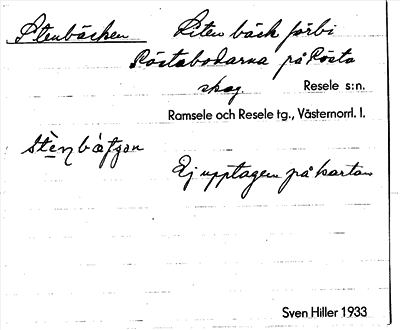 Stenbäcken Liten bäck förbi
Röstabodarna på Rösta
skog Resele s:n.
Ramsele och Resele tg., Västernorrl. l.
Ej upptagen på kartan
Sven Hiller 1933